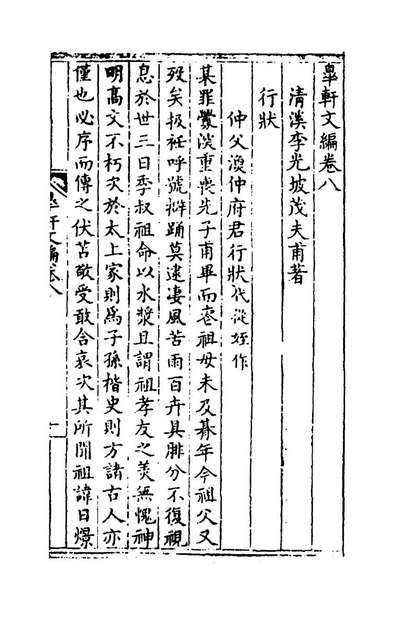 臯軒文編卷八
清溪李光坡茂夫甫著
行狀
仲父渙仲府君行狀代從姪作
某罪釁深重喪先子甫畢而喪祖母未及朞年今祖父又
歿矣扱衽呼號擗踊莫逮淒風苦雨百卉具腓分不復視
息於世三日季叔祖命以水漿且謂祖孝友之美無愧神
明高文不朽次於太上家則爲子孫楷史則方諸古人亦
僅也必序而傳之伏苫敬受敢含哀次其所聞祖諱日燝
臯軒文編卷八
一